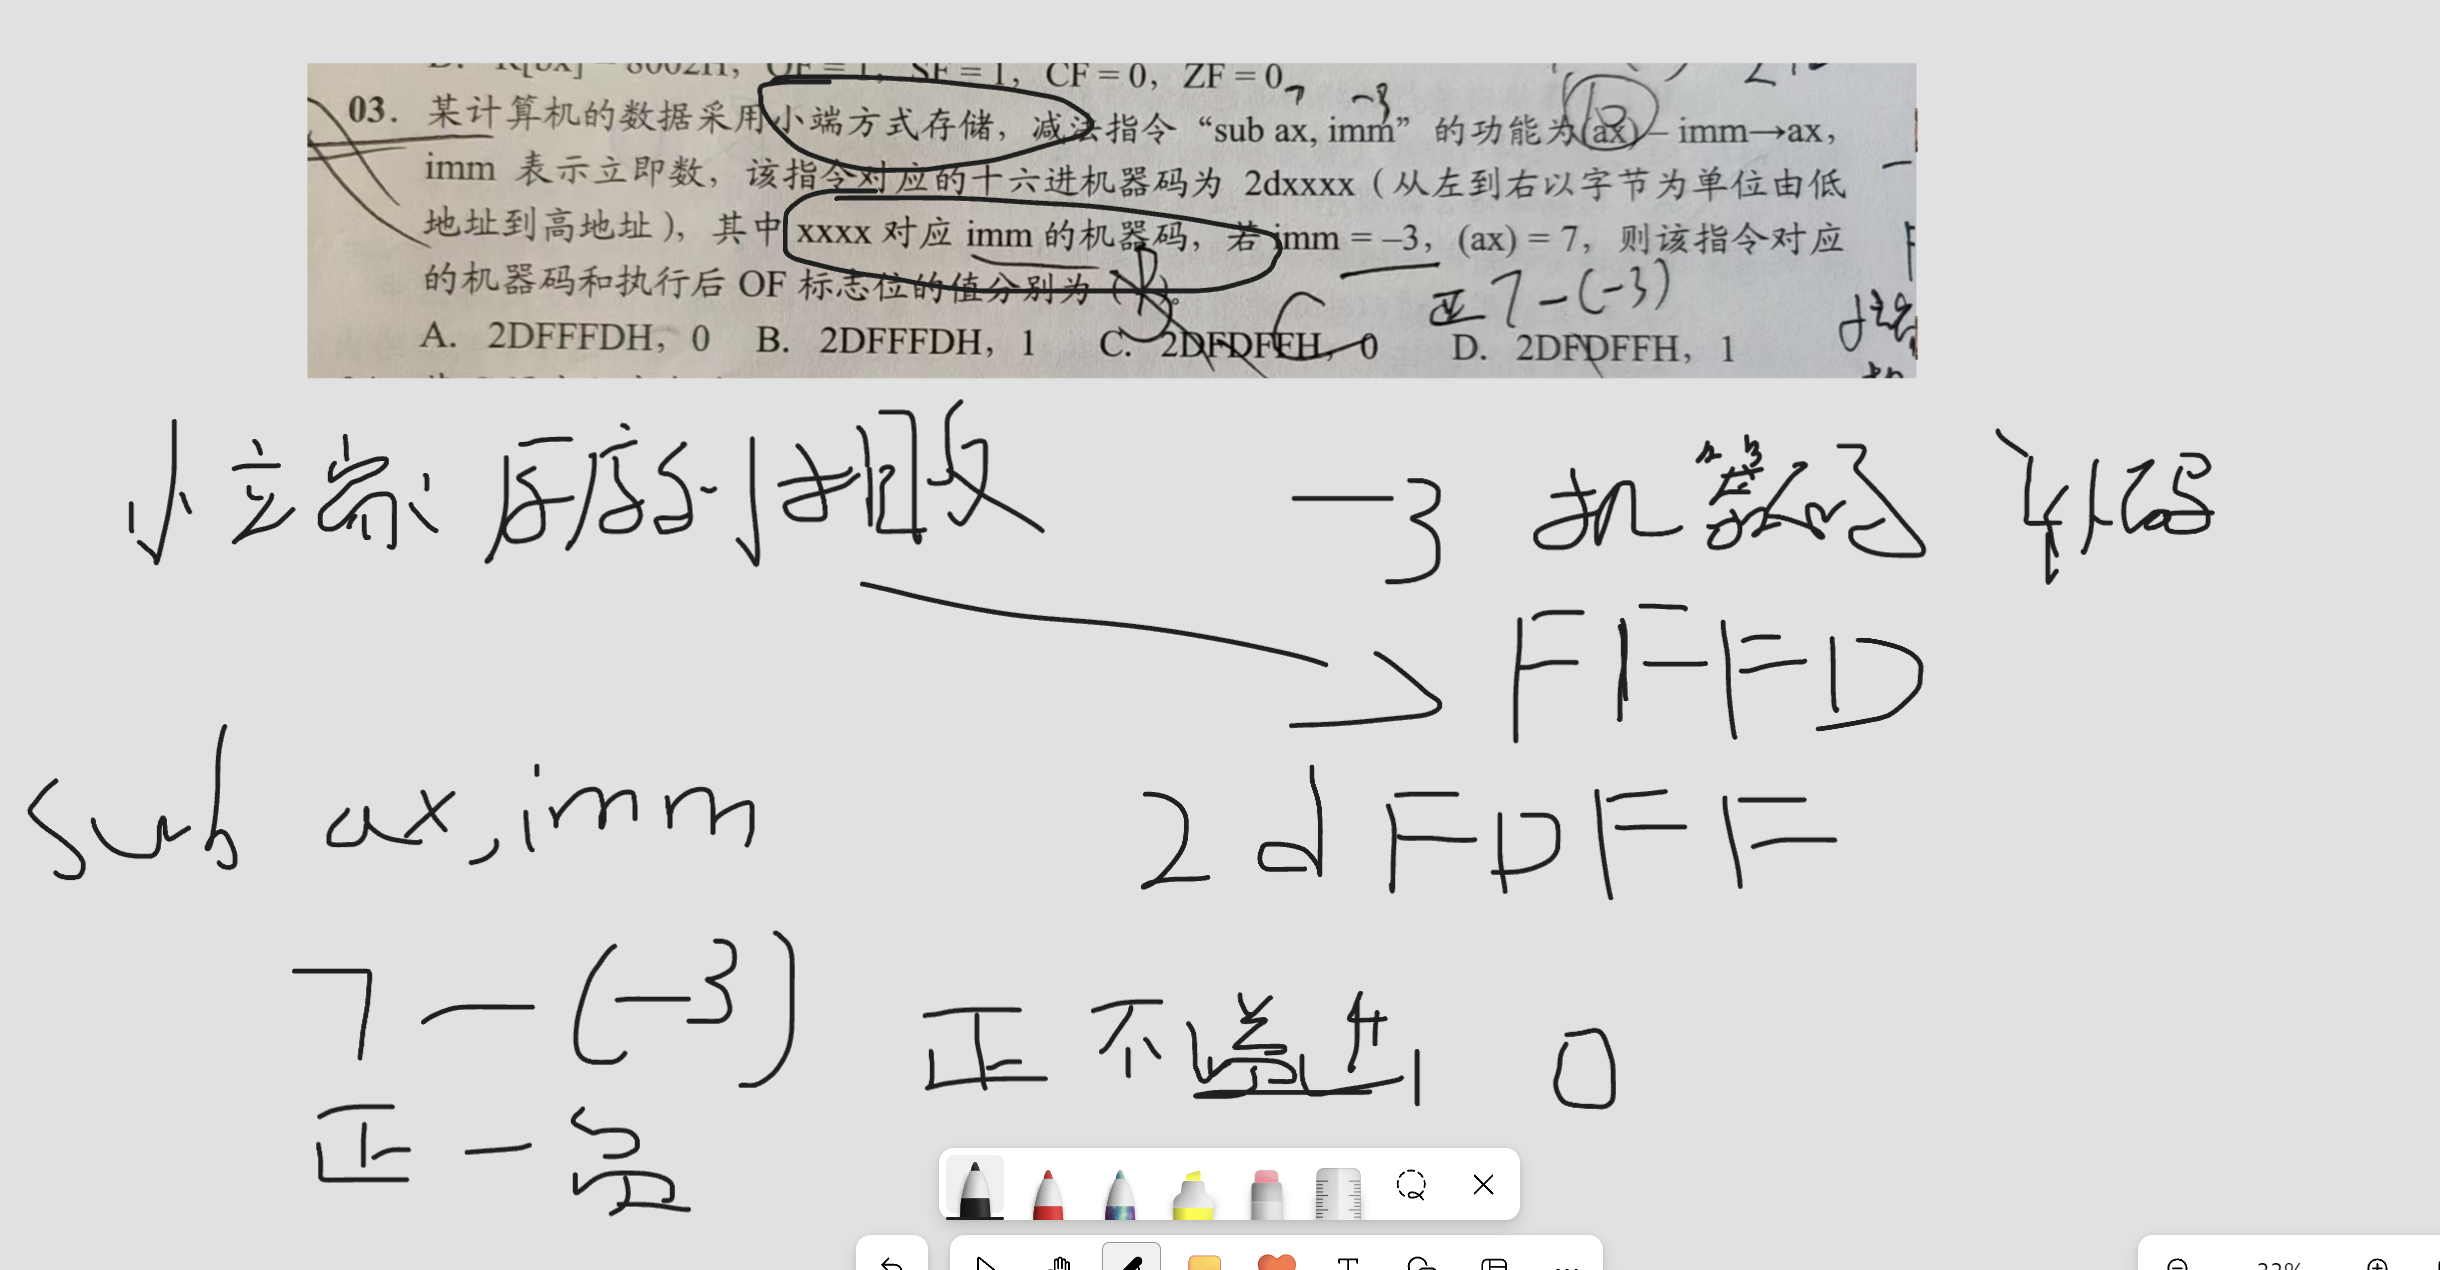 R[bx] = 8002H, OF = 1, SF = 1, CF = 0, ZF = 0
7 -3
03. 某计算机的数据采用小端方式存储, 减法指令 “sub ax, imm” 的功能为(ax) – imm→ax,
imm 表示立即数, 该指令对应的十六进机器码为 2dxxxx (从左到右以字节为单位由低
地址到高地址), 其中 xxxx 对应 imm 的机器码, 若 imm = –3, (ax) = 7, 则该指令对应
的机器码和执行后 OF 标志位的值分别为 ( )。
正 7-(-3)
A. 2DFFFDH, 0 B. 2DFFFDH, 1 C. 2DFDFFH, 0 D. 2DFDFFH, 1
小端
-3 机器码 补码
FFFD
sub ax,imm
2dFDFF
7-(-3) 正 不溢出 0
正-
22%